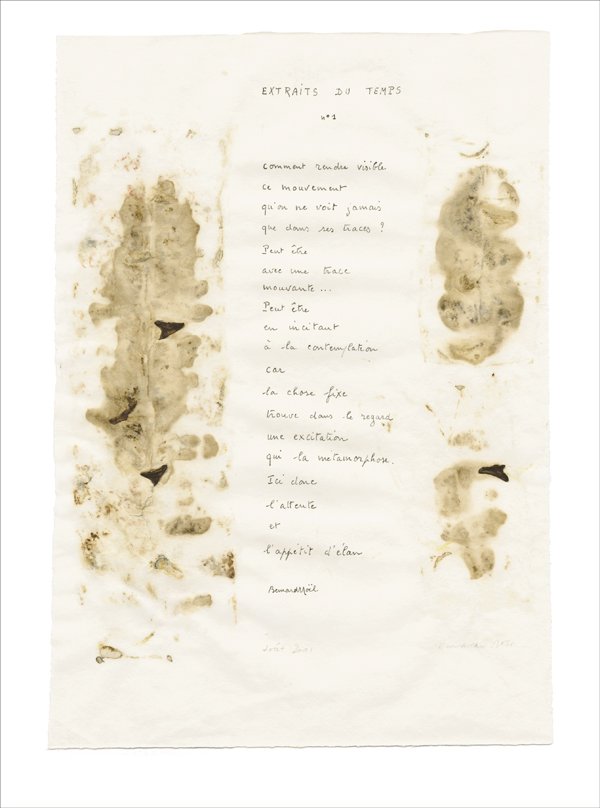 EXTRAITS DU TEMPS
n°1
comment rendre visible
ce mouvement
qu'on ne voit jamais
que dans ses traces ?
Peut être
avec une trace
mouvante...
Peut être
en incitant
à la contemplation
car
la chose fixe
trouve dans le regard
une excitation
qui la métamorphose.
Ici donc
l'attente
et
l'appétit d'élan
Bernard Noël